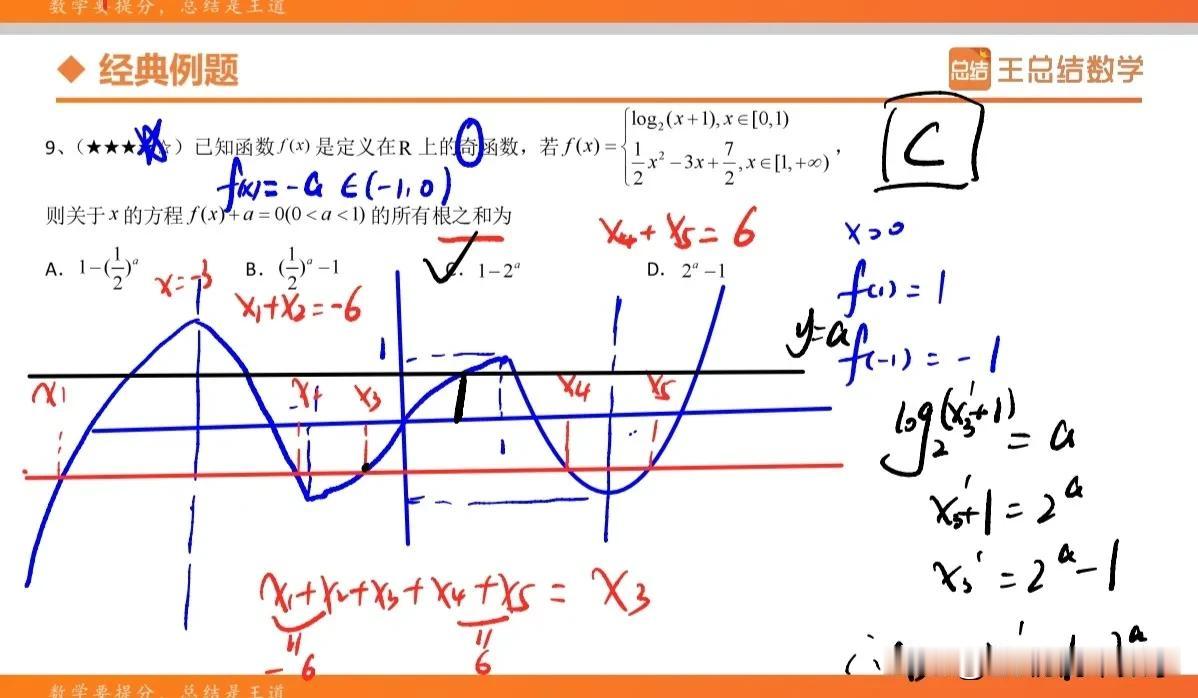 数学要提分，总结是王道
经典例题
总结 王总结数学
9、(★★★☆) 已知函数f(x)是定义在R上的奇函数，若f(x)={log₂(x+1),x∈[0,1)
1/2x²-3x+7/2,x∈[1,+∞)，
C
f(x)=-a∈(-1,0)
则关于x的方程f(x)+a=0(0<a<1)的所有根之和为
x₄+x₅=6
x>0
A. 1-(1/2)ᵃ B. (1/2)ᵃ-1 C. 1-2ᵃ D. 2ᵃ-1
x=-3
x₁+x₂=-6
f(1)=1
y=a
f(-1)=-1
1
x₁ x₃ x₄ x₅
-1
1
log₂(x₃'+1)=a
x₃'+1=2ᵃ
x₃'=2ᵃ-1
x₁+x₂+x₃+x₄+x₅=x₃
-6 6
数学要提分，总结是王道